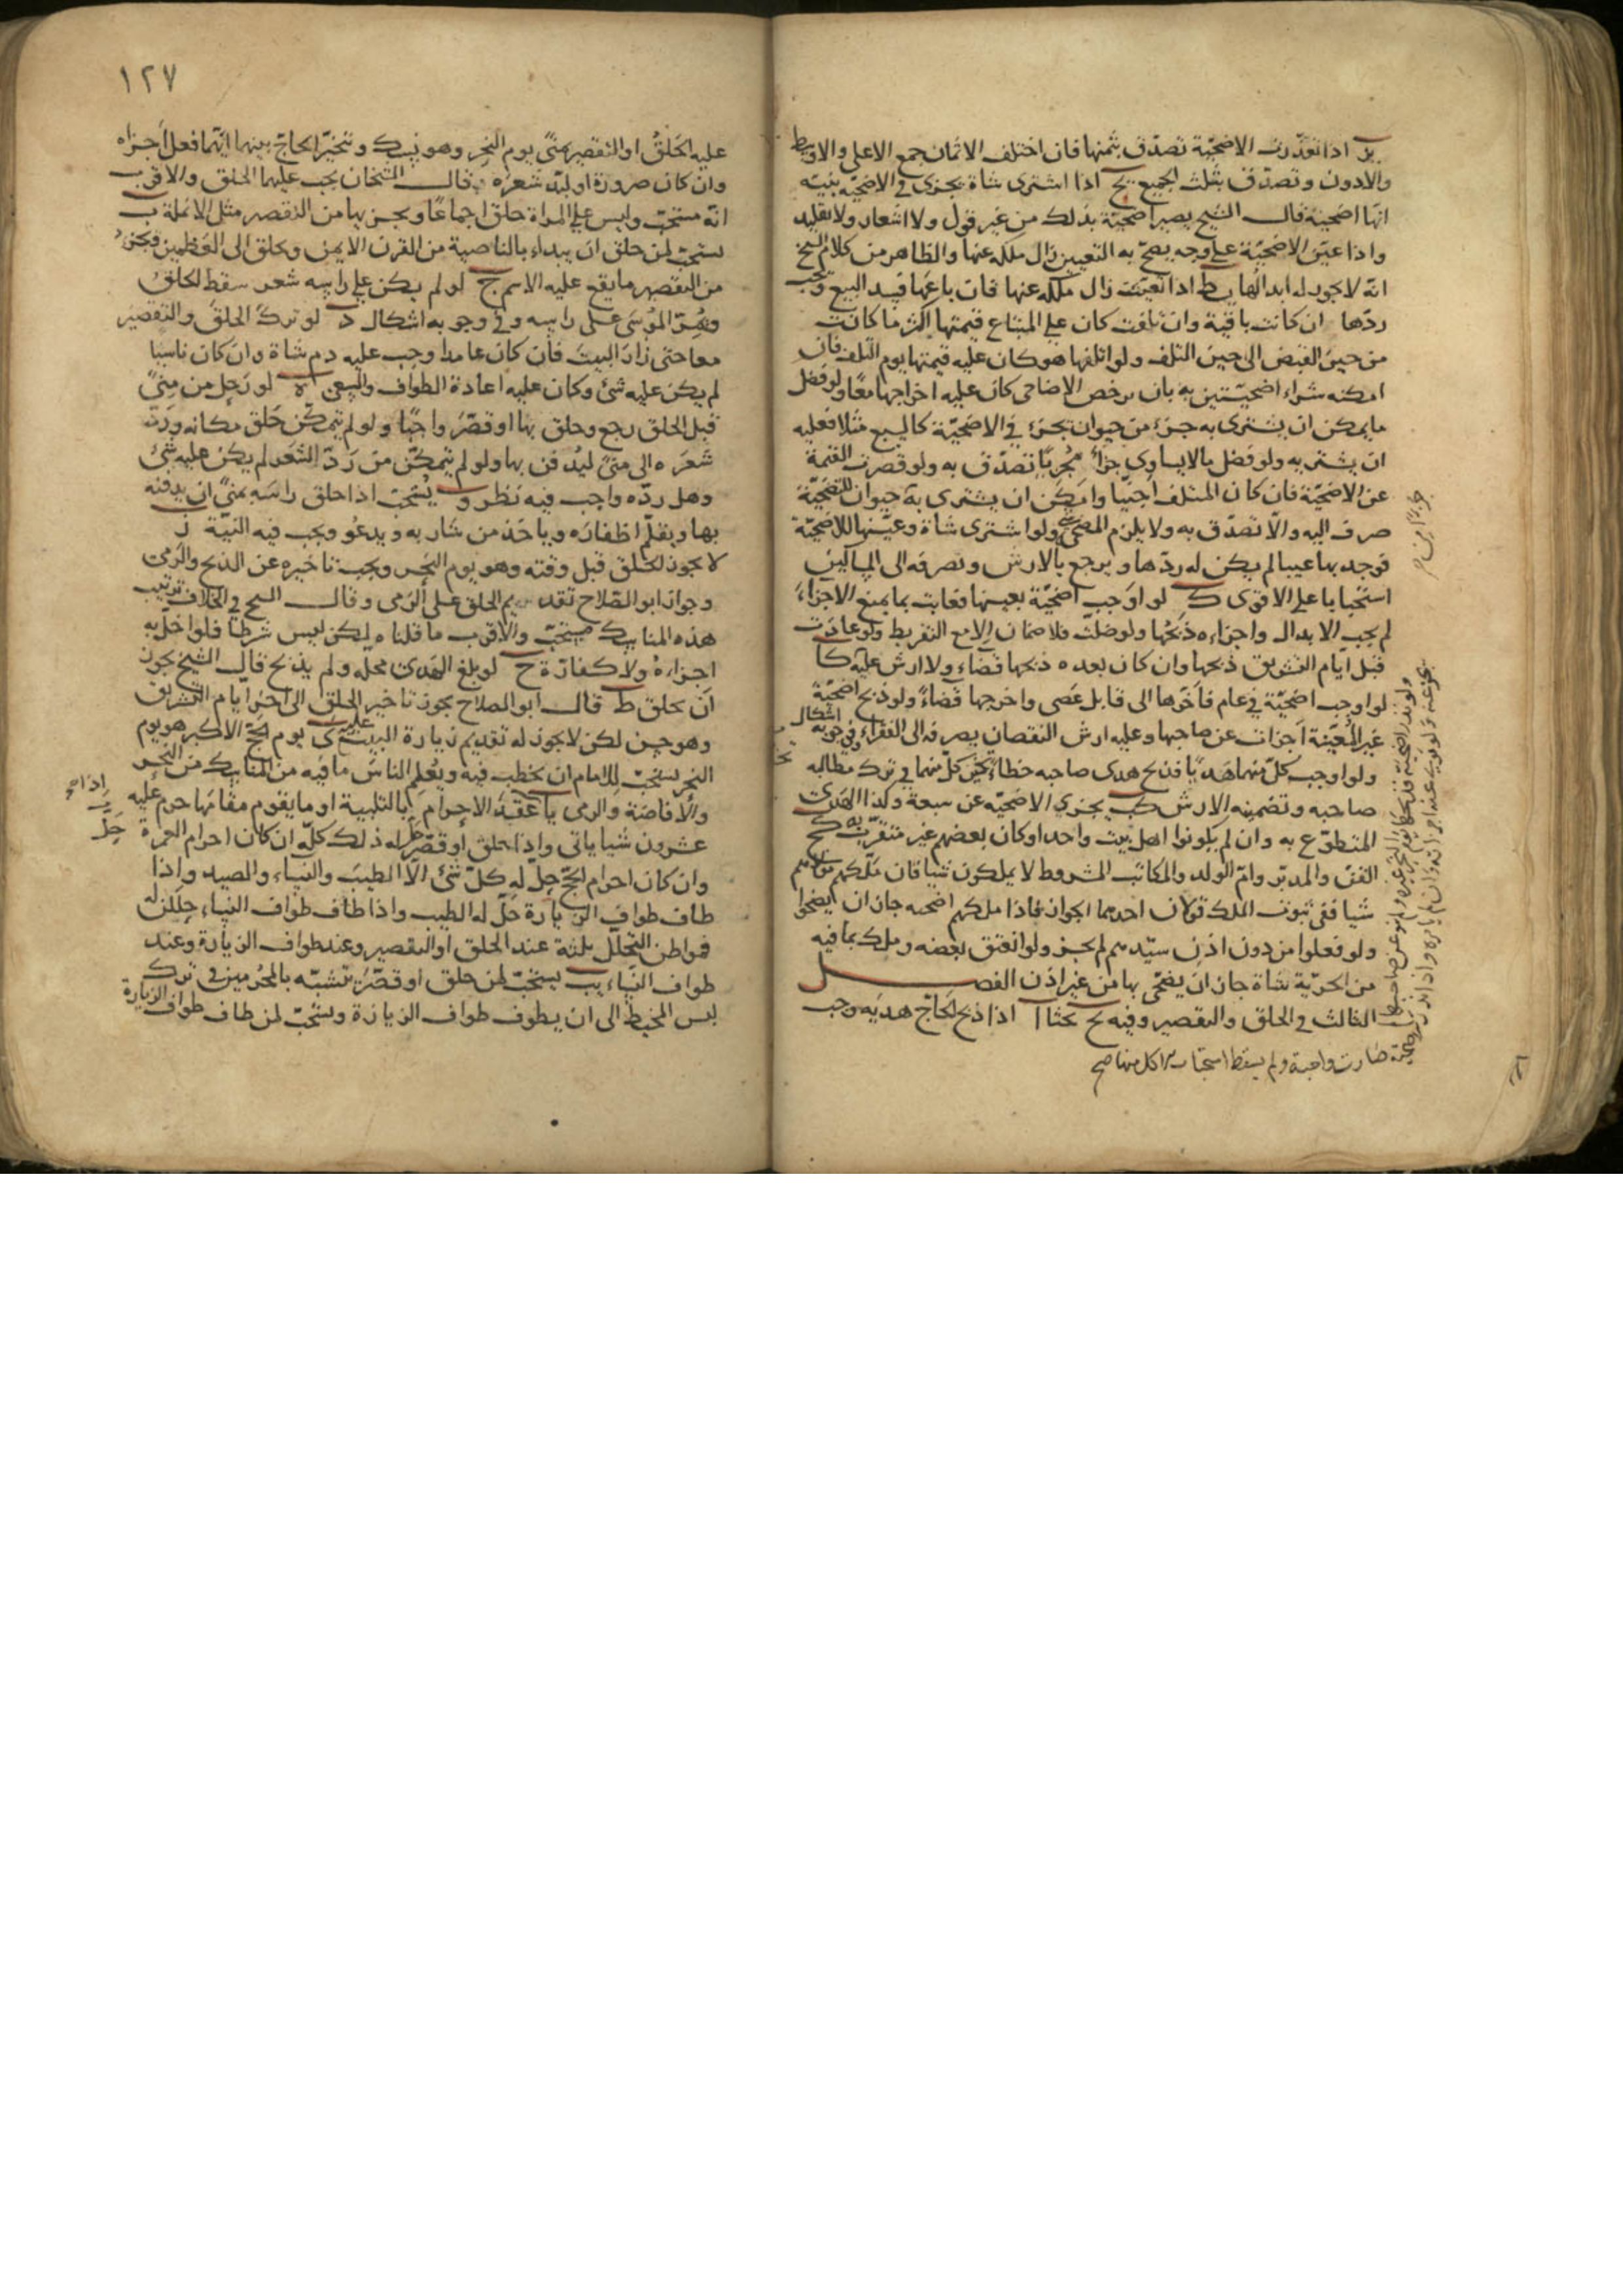 يز اذا تعذرت الاضحيّة تصدّق بثمنها فان اختلف الاثمان جمع الاعلى والاوسط
والادون وتصدّق بثلث الجميع يح اذا اشترى شاة يجزى فى الاضحيّة بنيّة
انّها اضحيّة قال الشيخ يصير اضحيّة بذلك من غير قول ولا اشعار ولا تقليد
واذا عيّن الاضحيّة على وجه يصحّ به التعيين زال ملكه عنها والظاهر من كلام الشيخ
انّه لا يجوز له ابدالها يط اذا تعيّنت زال ملكه عنها فان باعها فسد البيع وتجب
ردّها ان كانت باقية وان تلفت كان على المبتاع قيمتها اكثر ما كانت
من حين القبض الى حين التلف ولو اتلفها هو كان عليه قيمتها يوم التلف فان
امكنه شراء اضحيّتين به بان رخص الاضاحى كان عليه اخراجهما معًا ولو فضل
ما يمكن ان يشترى به جزء من حيوان يجزء فى الاضحيّة كالسبع مثلا فعليه
ان يشتريه ولو فضل ما لا يساوى جزءًا مجزيًا تصدّق به ولو قصرت القيمة
عن الاضحيّة فان كان المتلف اجنبيّا وامكن ان يشترى به حيوان للتضحيّة
صرف اليه والّا تصدّق به ولا يلزم المضحى ولو اشترى شاة وعيّنها للاضحيّة
فوجد بها عيبا لم يكن له ردّها ويرجع بالارش وتصرفه الى المساكين
استحبابا على الاقوى ك لو اوجب اضحيّة بعينها فعابت بما يمنع الاجزاء
لم يجب الابدال واجزاه ذبحها ولو ضلّت فلا ضمان الا مع التفريط ولو عادت
قبل ايّام التشريق ذبحها وان كان بعده ذبحها قضاء ولا ارش عليه كا
لو اوجب اضحيّة فى عام فاخّرها الى قابل عصى واخرجها قضاءً ولو ذبح اضحيّة
غير المعيّنة اجزات عن صاحبها وعليه ارش النقصان يصرفه الى الفقراء وفى وجوبه اشكال
ولو اوجب كلّ منهما هديًا فذبح كلّ منهما هدى صاحبه خطاء فى ترك مطالبه
صاحبه وتضمينه الارش كب يجزى الاضحيّة عن سبعة وكذا الهدى
المتطوّع به وان لم يكونوا اهل بيت واحد او كان بعضهم غير متقرّب به كج
القن والمدبّر وامّ الولد والمكاتب المشروط لا يملكون شيئا فان ملّكهم مولاهم
شيئا ففى ثبوت الملك قولان احدهما الجواز فاذا ملكهم اضحيه جاز ان يضحّوا
ولو فعلوا من دون اذن سيّدهم لم يجز ولو انعتق بعضه وملك بما فيه
من الحرّية شاة جاز ان يضحّى بها من غير اذن الفصل
الثالث فى الحلق والتقصير وفيه يح بحثا ا اذا ذبح الحاجّ هديه وجب
صارت واجبة ولم يسقط استحباب الاكل منها صح
١٢٧
عليه الحلق او التقصير بمنًى يوم النحر وهو نسك ويتخيّر الحاجّ بينهما ايّهما فعل اجزاه
وان كان صرورة او لبّد شعره وقال الشيخان يجب عليهما الحلق والاقرب
انّه مستحبّ وليس على المراة حلق اجماعًا ويجزيها من التقصير مثل الانملة ب
يستحبّ لمن حلق ان يبداء بالناصية من القرن الايمن ويحلق الى العظمين ويجزء
من التقصير ما يقع عليه الاسم ج لو لم يكن على راسه شعر سقط الحلق
ويمرّ الموسى على راسه وفى وجوبه اشكال د لو ترك الحلق والتقصير
معا حتى زار البيت فان كان عامدا وجب عليه دم شاة وان كان ناسيا
لم يكن عليه شئ وكان عليه اعادة الطواف والسعى ه لو رحل من منًى
قبل الحلق رجع وحلق بها او قصّر واجبًا ولو لم يتمكّن حلق مكانه وردّ
شعره الى منًى ليدفن بها ولو لم يتمكّن من ردّ الشعر لم يكن عليه شئ
وهل ردّه واجب فيه نظر و يستحبّ اذا حلق راسه بمنًى ان يدفنه
بها ويقلّم اظفاره وياخذ من شاربه ويدعو ويجب فيه النيّة ز
لا يجوز الحلق قبل وقته وهو يوم النحر ويجب تاخيره عن الذبح والرمى
وجواز ابو الصّلاح تقديم الحلق على الرمى وقال الشيخ فى الخلاف ترتيب
هذه المناسك مستحبّ والاقرب ما قلناه ليكن ليس شرطًا فلو اخلّ به
اجزاءه ولا كفارة ح لو بلغ الهدى محله ولم يذبح قال الشيخ يجوز
ان يحلق ط قال ابو الصلاح يجوز تاخير الحلق الى اخر ايّام التشريق
وهو حسن لكن لا يجوز له تقديم زيارة البيت عليه ى يوم الحجّ الاكبر هو يوم
النحر يستحبّ للامام ان يخطب فيه ويعلم الناس ما فيه من المناسك من النحر
والافاضة والرمى يا اذا عقد الاحرام بالتلبية او ما يقوم مقامها حرم عليه
عشرون شيئا ياتى واذا حلق او قصّر حلّ له ذلك كلّه ان كان احرام العمرة
وان كان احرام الحجّ حلّ له كلّ شئ الّا الطيب والنساء والصيد واذا
طاف طواف الزيارة حلّ له الطيب واذا طاف طواف النساء حللن له
فمواطن التحلّل ثلثة عند الحلق او التقصير وعند طواف الزيارة وعند
طواف النساء يب يستحبّ لمن حلق او قصّر يتشبّه بالمحرمين فى ترك
لبس المخيط الى ان يطوف طواف الزيارة ويستحبّ لمن طاف طواف الزيارة